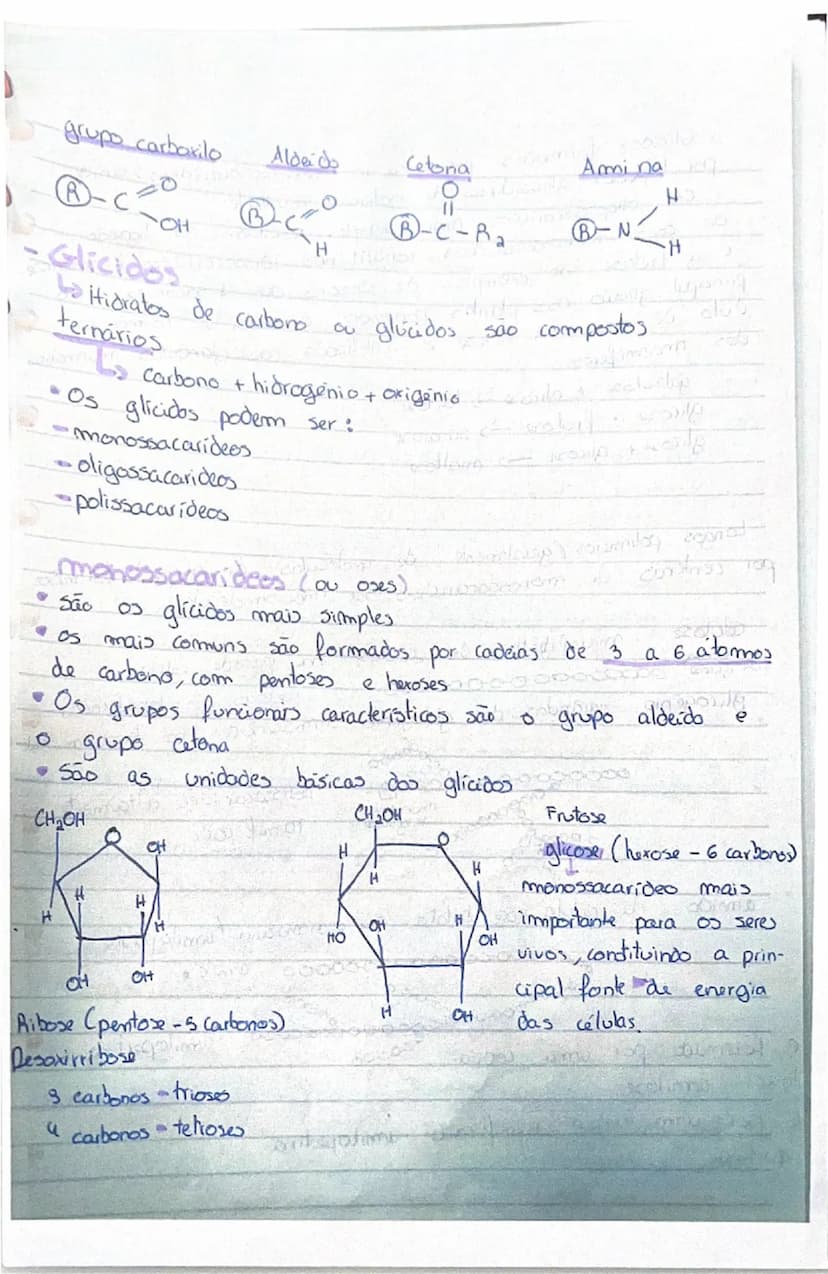 grupo carboxilo Aldeído Cetona Amina
R-C=O -OH R-C=O H R-C-R2 O R-N H H
- Glícidos
↳ Hidratos de carbono ou glúcidos são compostos
ternários
↳ carbono + hidrogénio + oxigénio
• Os glícidos podem ser:
- monossacarídeos
- oligossacarídeos
- polissacarídeos
monossacarídeos (ou oses)
• são os glícidos mais simples
• os mais comuns são formados por cadeias de 3 a 6 átomos
de carbono, com pentoses e hexoses
• Os grupos funcionais característicos são o grupo aldeído e
o grupo cetona
• São as unidades básicas dos glícidos
CH2OH O OH H H H H OH OH
CH2OH O H H H HO OH H OH H OH
Frutose
glicose (hexose - 6 carbonos)
↓
monossacarídeo mais
importante para os seres
vivos, constituindo a prin-
cipal fonte de energia
das células.
Ribose (pentose - 5 carbonos)
Desoxirribose
3 carbonos - trioses
4 carbonos - tetroses